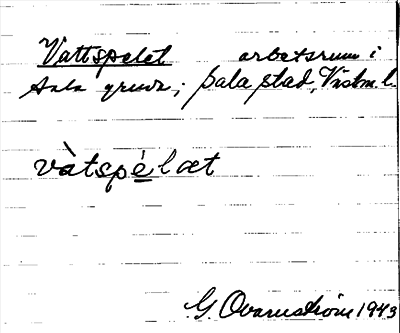 Vattspelet arbetsrum i
Sala gruva; Sala stad, Västm. l.
vàtspél æt
G Ovarnström 1943